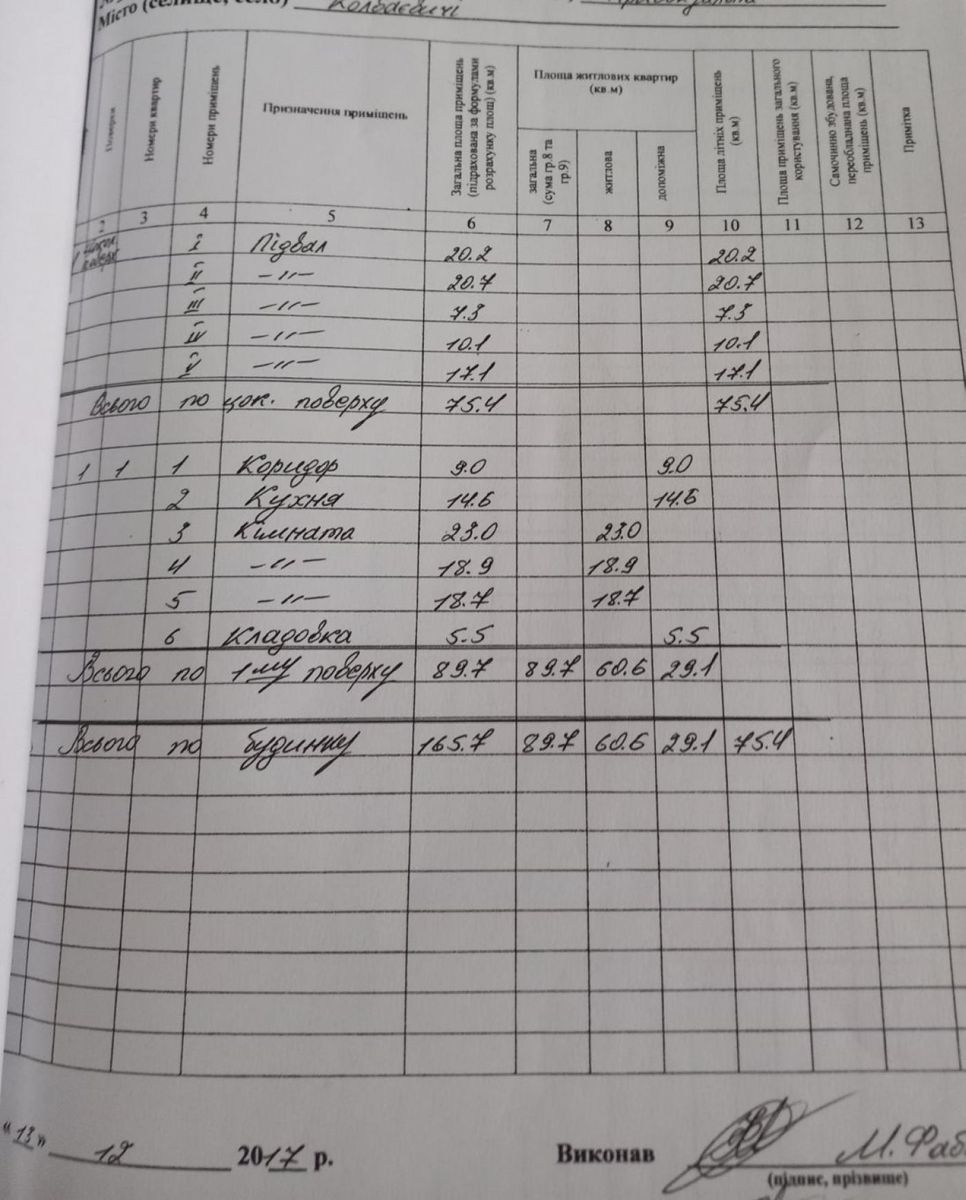 Місто (селище, село) Колбаєвичі
Поверхи
Номери квартир
Номери приміщень
Призначення приміщень
Загальна площа приміщень (підрахована за формулами розрахунку площ) (кв.м)
Площа житлових квартир (кв.м)
загальна (сума гр.8 та гр.9)
житлова
допоміжна
Площа літніх приміщень (кв.м)
Площа приміщень загального користування (кв.м)
Самочинно збудована, переобладнана площа приміщень (кв.м)
Примітка
2 3 4 5 6 7 8 9 10 11 12 13
поверх I Підвал 20.2 20.2
II —〃— 20.7 20.7
III —〃— 7.3 7.3
IV —〃— 10.1 10.1
V —〃— 17.1 17.1
Всього по цок. поверху 75.4 75.4
1 1 1 Коридор 9.0 9.0
2 Кухня 14.6 14.6
3 Кімната 23.0 23.0
4 —〃— 18.9 18.9
5 —〃— 18.7 18.7
6 Кладовка 5.5 5.5
Всього по 1му поверху 89.7 89.7 60.6 29.1
Всього по будинку 165.7 89.7 60.6 29.1 75.4
"13" 12 2017 р. Виконав М. Фаб
(підпис, прізвище)